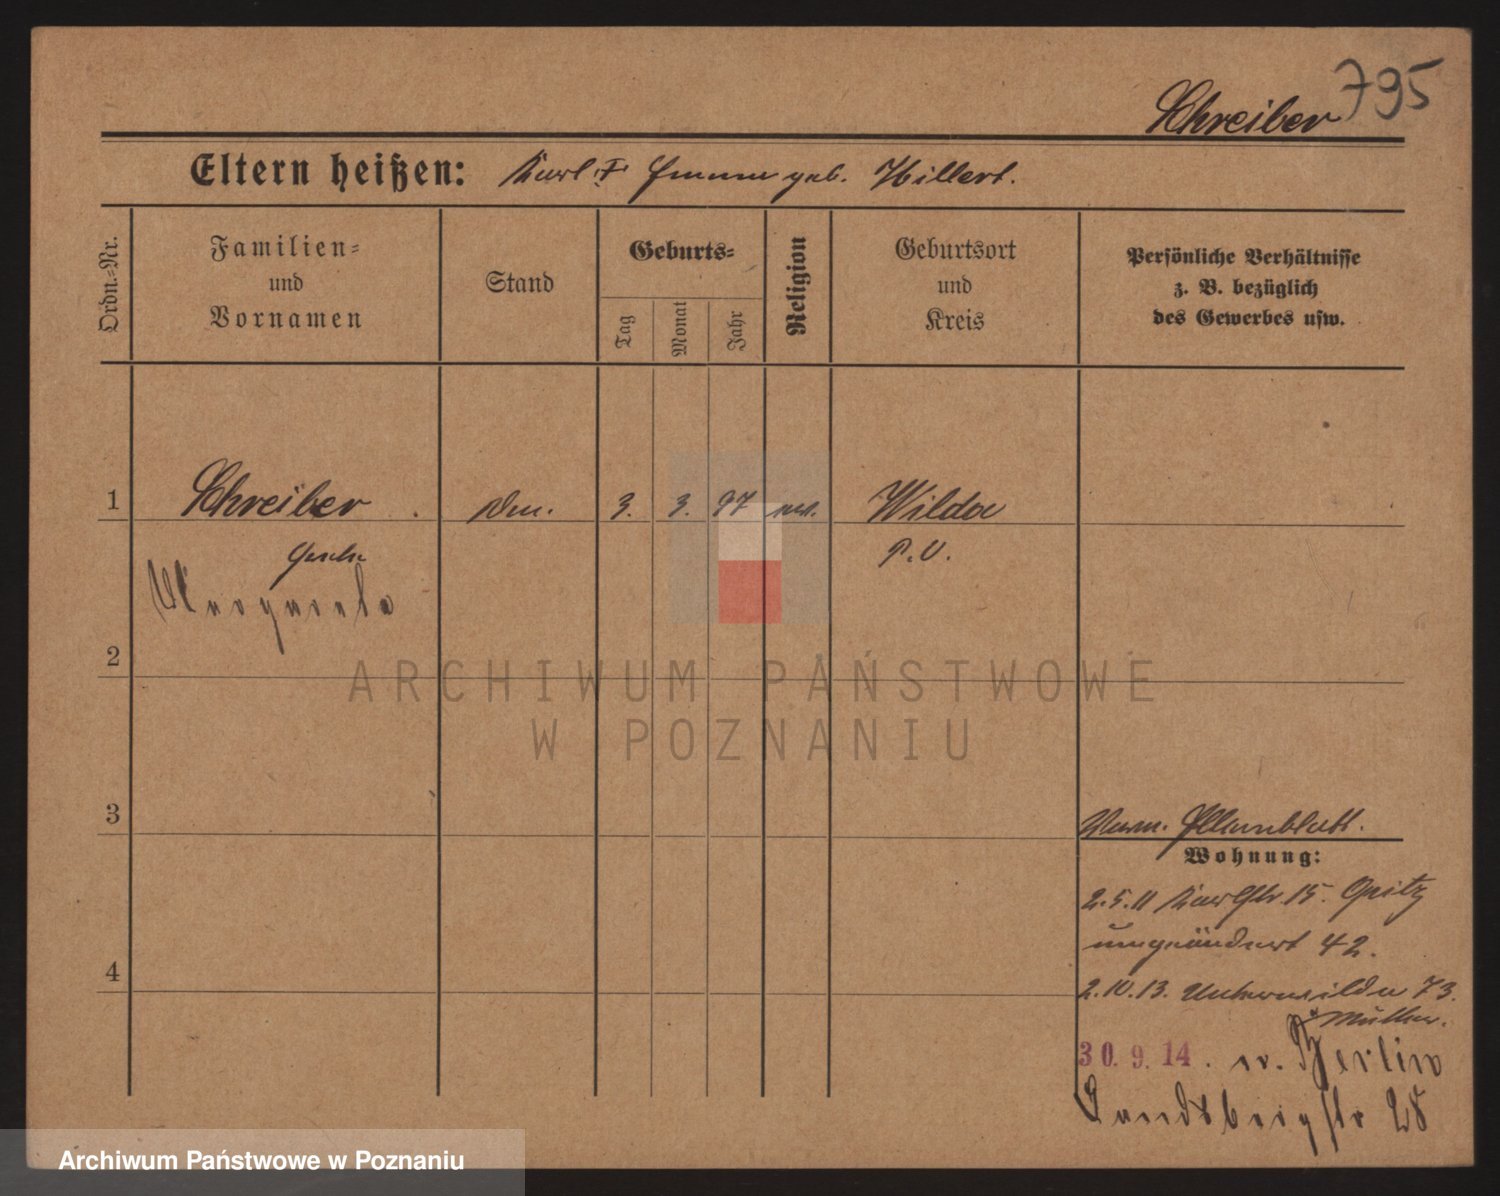 795
Schreiber
Eltern heißen: Karl u. Emma geb. Hillert.
Ordn.-Nr.
Familien-
und
Vornamen
Stand
Geburts-
Tag
Monat
Jahr
Religion
Geburtsort
und
Kreis
Persönliche Verhältnisse
z. B. bezüglich
des Gewerbes usw.
1 Schreiber 3. 3. 97 ev. Wilda
P. O.
Margarete
2
3
4
Wohnung:
2.5.11 15. Opitz
umgeändert 42.
2.10.13. Unterwilda 73.
Mutter.
30.9.14. n. Berlin
Landsbergstr 28
ARCHIWUM PAŃSTWOWE
W POZNANIU
Archiwum Państwowe w Poznaniu